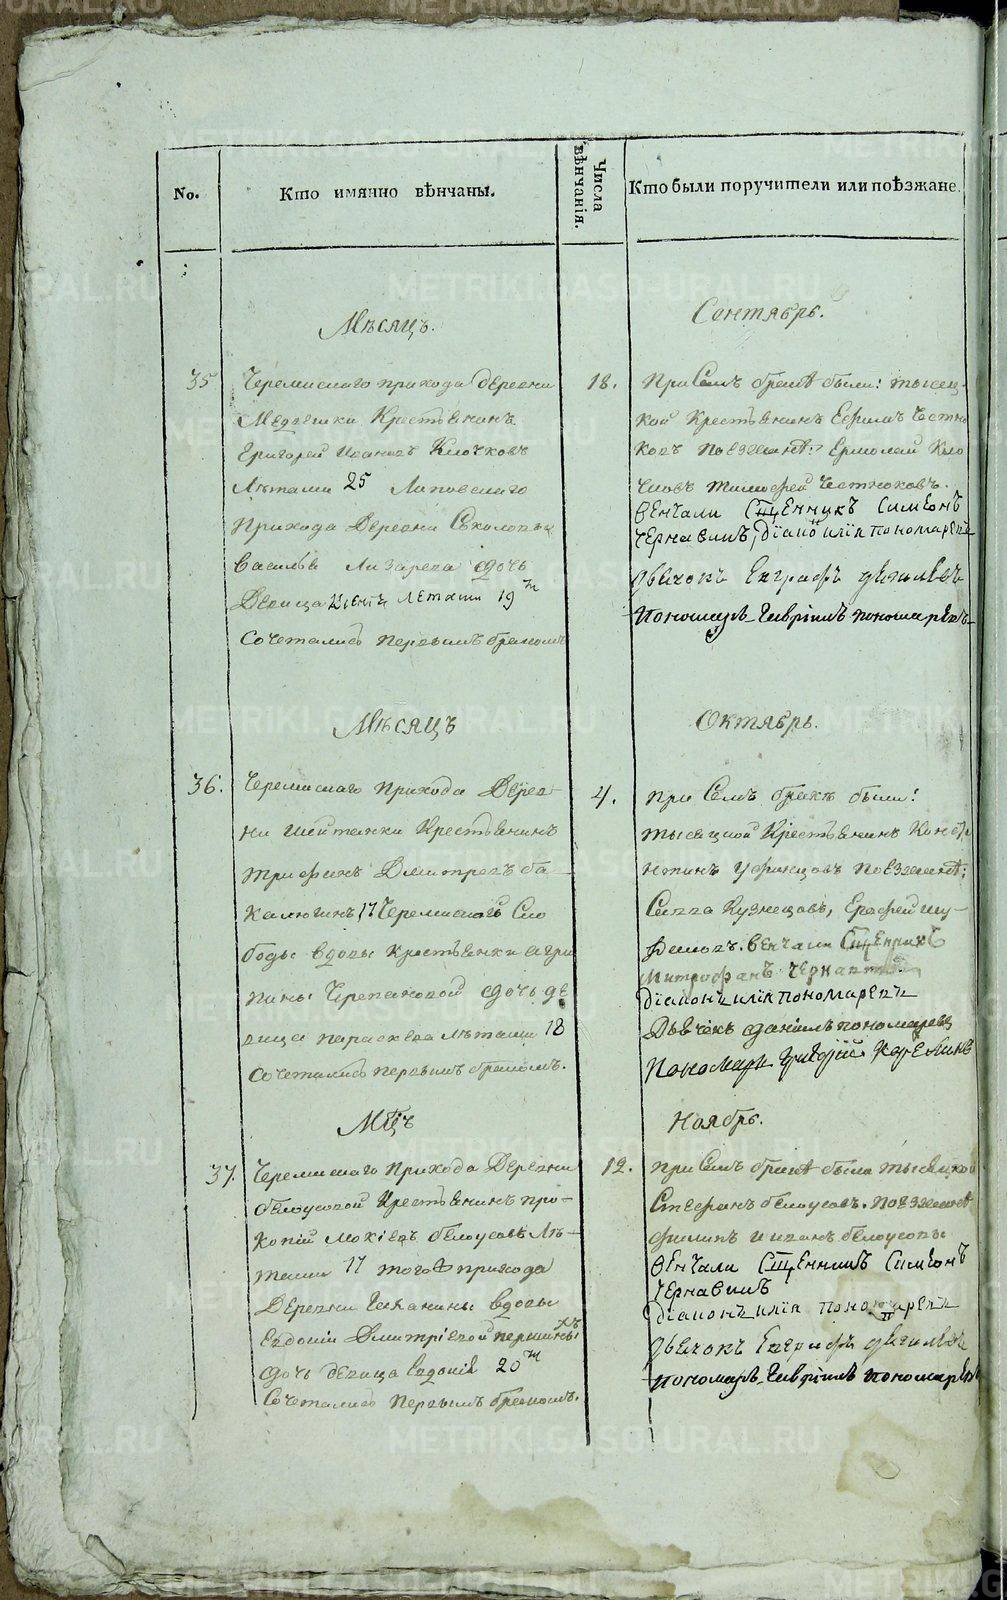 No.
Кто имянно вѣнчаны.
Числа вѣнчанія.
Кто были поручители или поѣзжане.
Мѣсяцъ.
Сентябрь.
35
Черемискаго прихода деревни
Медвешки Крестьянинъ
Григорей Ивановъ Клочковъ
Лѣтами 25 Липовскаго
Прихода деревни
Василья Лизарева дочь
Девица летами 19ти
Сочетались первымъ бракомъ
18.
При семъ браке были: тысец-
кой Крестьянинъ Ефимъ Честню
ковъ поезжане: Ермолай Кло
чковъ Тимофей Честноковъ.
венчали Сщенникъ Симеонъ
Чернавинъ, діаконъ илія пономаревъ
дьячокъ Евграфъ
пономарь Гаврiилъ пономаревъ
Мѣсяцъ
Октябрь.
36.
Черемискаго прихода Дерев-
ни Шайтанки Крестьянинъ
Трифонъ Дмитревъ ба
калюгинъ 17 Черемиской Сло
боды вдовы крестьянки агри
пины Черепановой дочь де
вица параскева лѣтами 18
Сочетались первымъ бракомъ.
4.
при Семъ браке были:
тысяцкой Крестьянинъ Конд
Уфинцовъ поезжане:
Савва Кузнецовъ, Ерофей Шу-
венчали Сщенникъ
Митрофанъ Чернавинъ
діаконъ илія пономаревъ
Дьячекъ даніилъ пономаревъ
Пономарь Григорій Карелинъ
Мцъ
Ноябрь.
37.
Черемискаго прихода Деревни
белоусовой Крестьянинъ про-
копій Мокіевъ белоусовъ лѣ-
тами 17 того прихода
Деревни Галанины вдовы
Евдокіи Дмитріевой першины
дочь девица Евдокія 20ти
Сочетались первымъ бракомъ.
12.
при Семъ браке были тысяцкой
Стефанъ белоусовъ. поезжане
филипъ и иванъ белоусовы
венчали Сщенникъ Симеонъ
Чернавинъ
діаконъ илія пономаревъ
дьячокъ Евграфъ
пономарь Гаврiилъ пономаревъ
METRIKI.GASO-URAL.RU